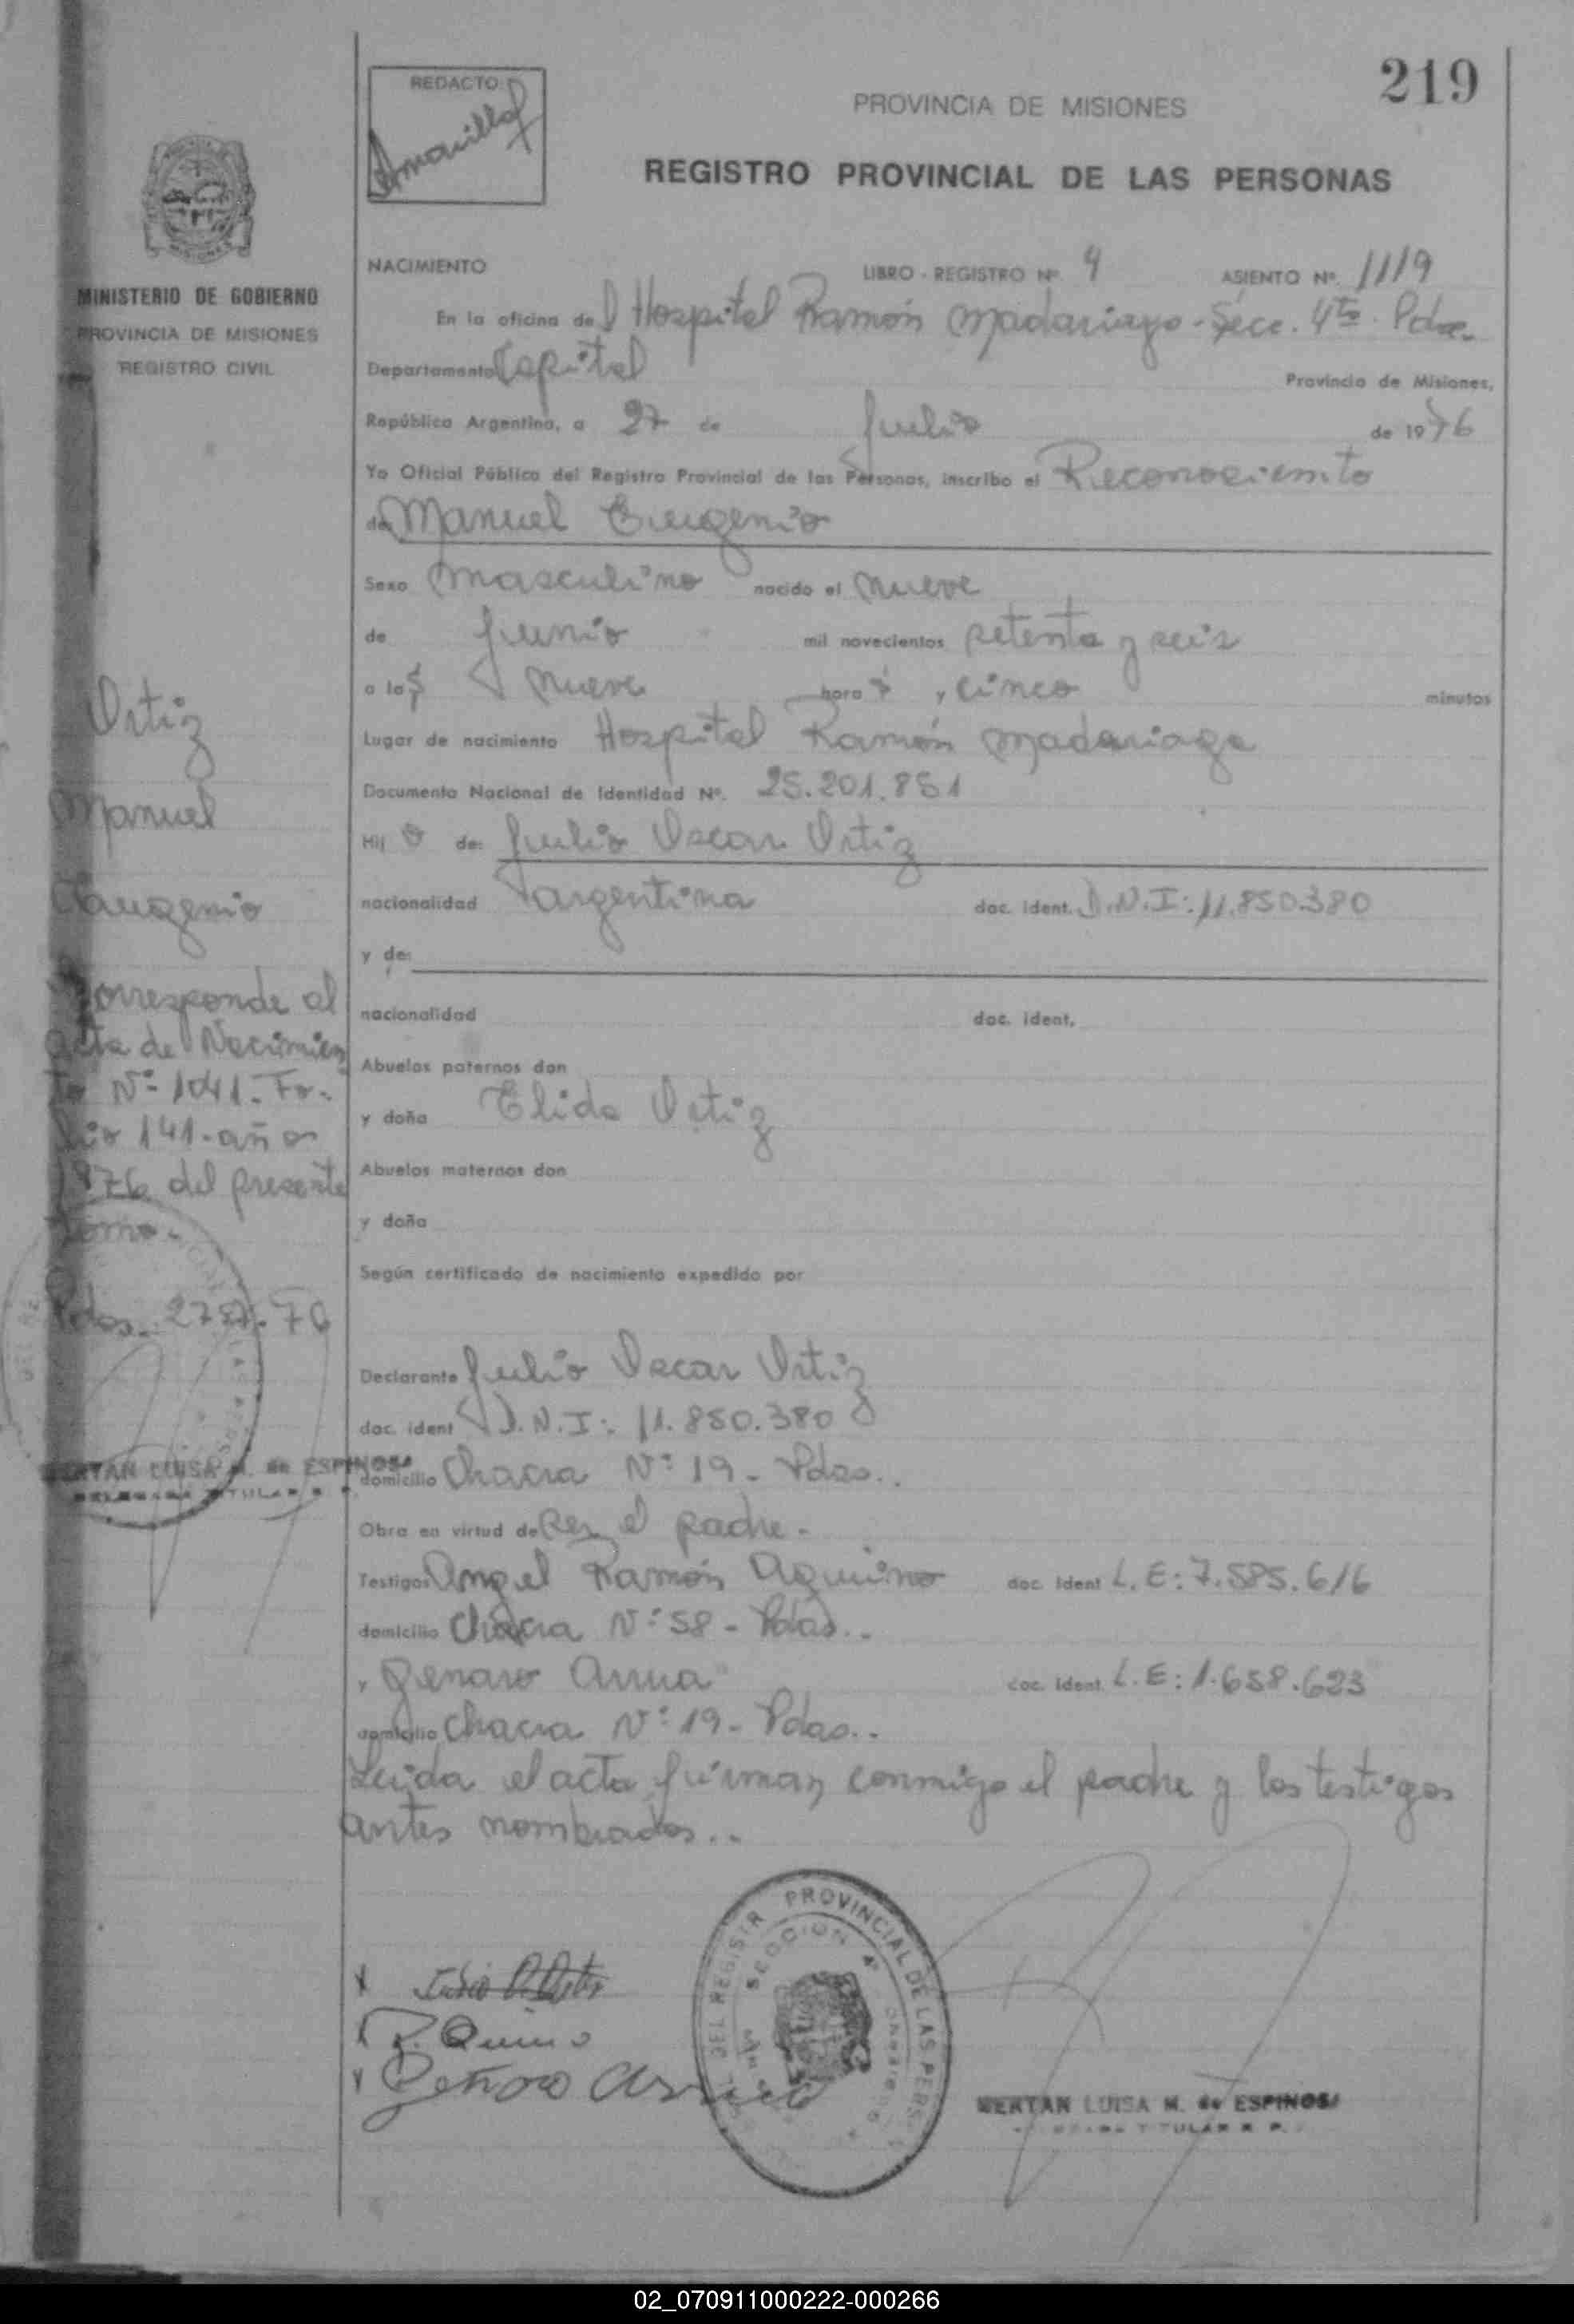 219
REDACTO:
PROVINCIA DE MISIONES
REGISTRO PROVINCIAL DE LAS PERSONAS
MINISTERIO DE GOBIERNO
PROVINCIA DE MISIONES
REGISTRO CIVIL
NACIMIENTO LIBRO - REGISTRO Nº 4 ASIENTO Nº. 1119
En la oficina del Hospital Ramón Madariaga - Secc. 4ta. Pdas.
Departamento Capital Provincia de Misiones,
República Argentina, a 27 de Julio de 1976
Yo Oficial Público del Registro Provincial de las Personas, inscribo el Reconocimiento
de Manuel Eugenio
Sexo Masculino nacido el nueve
de Junio mil novecientos setenta y seis
a las nueve hora s, y cinco minutos
Lugar de nacimiento Hospital Ramón Madariaga
Documento Nacional de Identidad Nº. 25.201.851
Hij o de: Julio Oscar Ortiz
nacionalidad argentina doc. ident. D.N.I: 11.850.380
y de:
nacionalidad doc. ident.
Abuelos paternos don
y doña Elida Ortiz
Abuelos maternos don
y doña
Según certificado de nacimiento expedido por
Declarante Julio Oscar Ortiz
doc. ident D.N.I: 11.850.380
domicilio Chacra Nº 19 - Pdas..
Obra en virtud de Ser el padre.
Testigos Angel Ramón Aquino doc. ident L.E: 7.585.616
domicilio Chacra Nº 58 - Pdas..
y Genaro Arrua doc. ident. L.E: 1.658.623
domicilio Chacra Nº 19 - Pdas..
Leida el acta, firman conmigo el padre y los testigos
antes nombrados..
Ortiz
Manuel
Eugenio
Corresponde al
acta de Nacimien
to Nº 1041. Fo-
lio 141- año
1976 del presente
tomo.
Pdas.
BERTAN LUISA M. de ESPINOSA
DELEGADA TITULAR R. P.
DEL REGISTR PROVINCIAL DE LAS PERS
SECCION 4ª
BERTAN LUISA M. de ESPINOSA
DELEGADA TITULAR R. P.
02_070911000222-000266